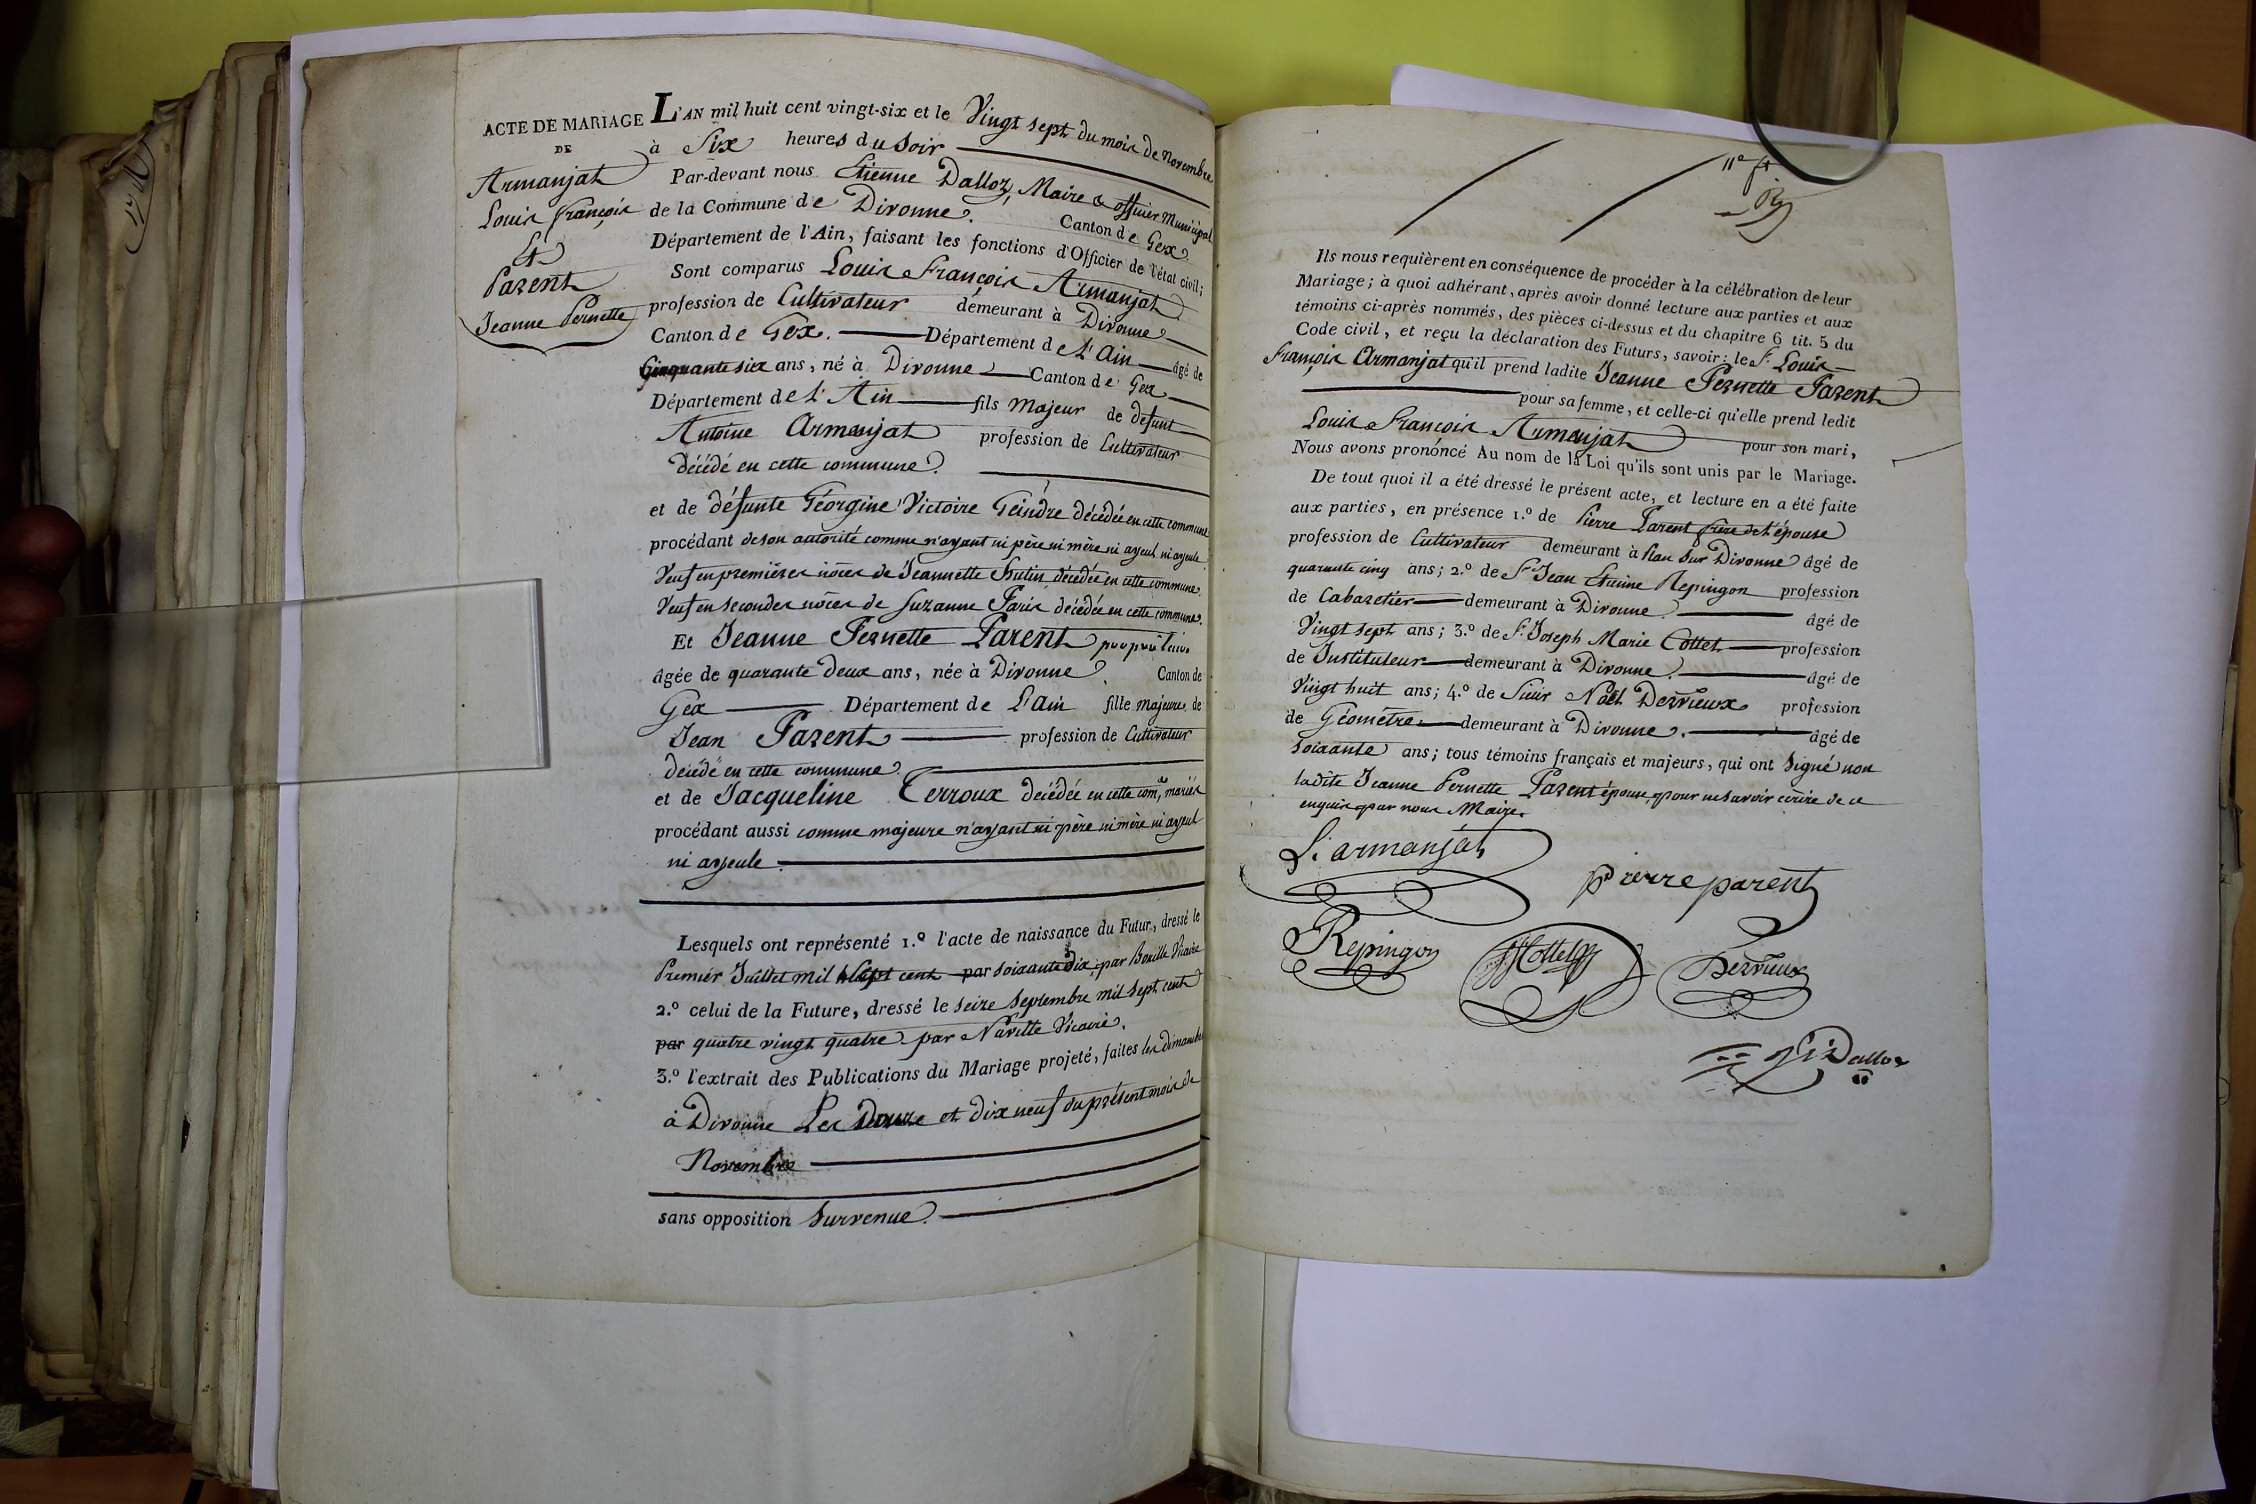 ACTE DE MARIAGE
DE
Armanjat
Louis françois
Et
Parent
Jeanne Pernette
L'AN mil huit cent vingt-six et le Vingt sept du mois de Novembre
à Six heures du Soir
Par-devant nous Etienne Dalloz, Maire & officier Municipal
de la Commune de Divonne. Canton de Gex
Département de l'Ain, faisant les fonctions d'Officier de l'état civil;
Sont comparus Louis François Armanjat
profession de Cultivateur demeurant à Divonne
Canton de Gex. Département de L'Ain âgé de
Cinquante six ans, né à Divonne Canton de Gex
Département de L'Ain fils Majeur de défunt
Antoine Armanjat profession de Cultivateur
décédé en cette commune.
et de défunte Géorgine Victoire Geindre décédée en cette commune
procédant de son autorité comme n'ayant ni père ni mère ni ayeul ni ayeule
Veuf en premières nôces de Jeannette Hutin décédée en cette commune.
Veuf en secondes nôces de Suzanne Paris décédée en cette commune.
Et Jeanne Pernette Parent propriétaire
âgée de quarante deux ans, née à Divonne Canton de
Gex Département de L'Ain fille majeure de
Jean Parent profession de Cultivateur
décédé en cette commune
et de Jacqueline Terroux décédée en cette com.ne mariés
procédant aussi comme majeure n'ayant ni père ni mère ni ayeul
ni ayeule.
Lesquels ont représenté 1.º l'acte de naissance du Futur, dressé le
Premier Juillet mil Sept cent par soixante dix, par Bouille Vicaire
2.º celui de la Future, dressé le seize Septembre mil sept cent
par quatre vingt quatre par Naville Vicaire.
3.º l'extrait des Publications du Mariage projeté, faites les dimanches
à Divonne Les Douze et dix neuf du présent mois de
Novembre
sans opposition Survenue.
11e ft
Ils nous requièrent en conséquence de procéder à la célébration de leur
Mariage; à quoi adhérant, après avoir donné lecture aux parties et aux
témoins ci-après nommés, des pièces ci-dessus et du chapitre 6 tit. 5 du
Code civil, et reçu la déclaration des Futurs, savoir: le Sr. Louis
François Armanjat qu'il prend ladite Jeanne Pernette Parent
pour sa femme, et celle-ci qu'elle prend ledit
Louis François Armanjat pour son mari,
Nous avons prononcé Au nom de la Loi qu'ils sont unis par le Mariage.
De tout quoi il a été dressé le présent acte, et lecture en a été faite
aux parties, en présence 1.º de Pierre Parent frère de l'épouse
profession de Cultivateur demeurant à Plan Sur Divonne âgé de
quarante cinq ans; 2.º de Sr. Jean Etienne Repingon profession
de Cabaretier demeurant à Divonne âgé de
Vingt sept ans; 3.º de Sr. Joseph Marie Cottet profession
de Instituteur demeurant à Divonne. âgé de
Vingt huit ans; 4.º de Sieur Noël Dervieux profession
de Géomètre demeurant à Divonne. âgé de
soixante ans; tous témoins français et majeurs, qui ont Signé non
ladite Jeanne Pernette Parent épouse, pour ne savoir écrire de ce
enquis par nous Maire.
L. armanjat
pierre parent
Repingon
Cottet
Dervieux
Dalloz